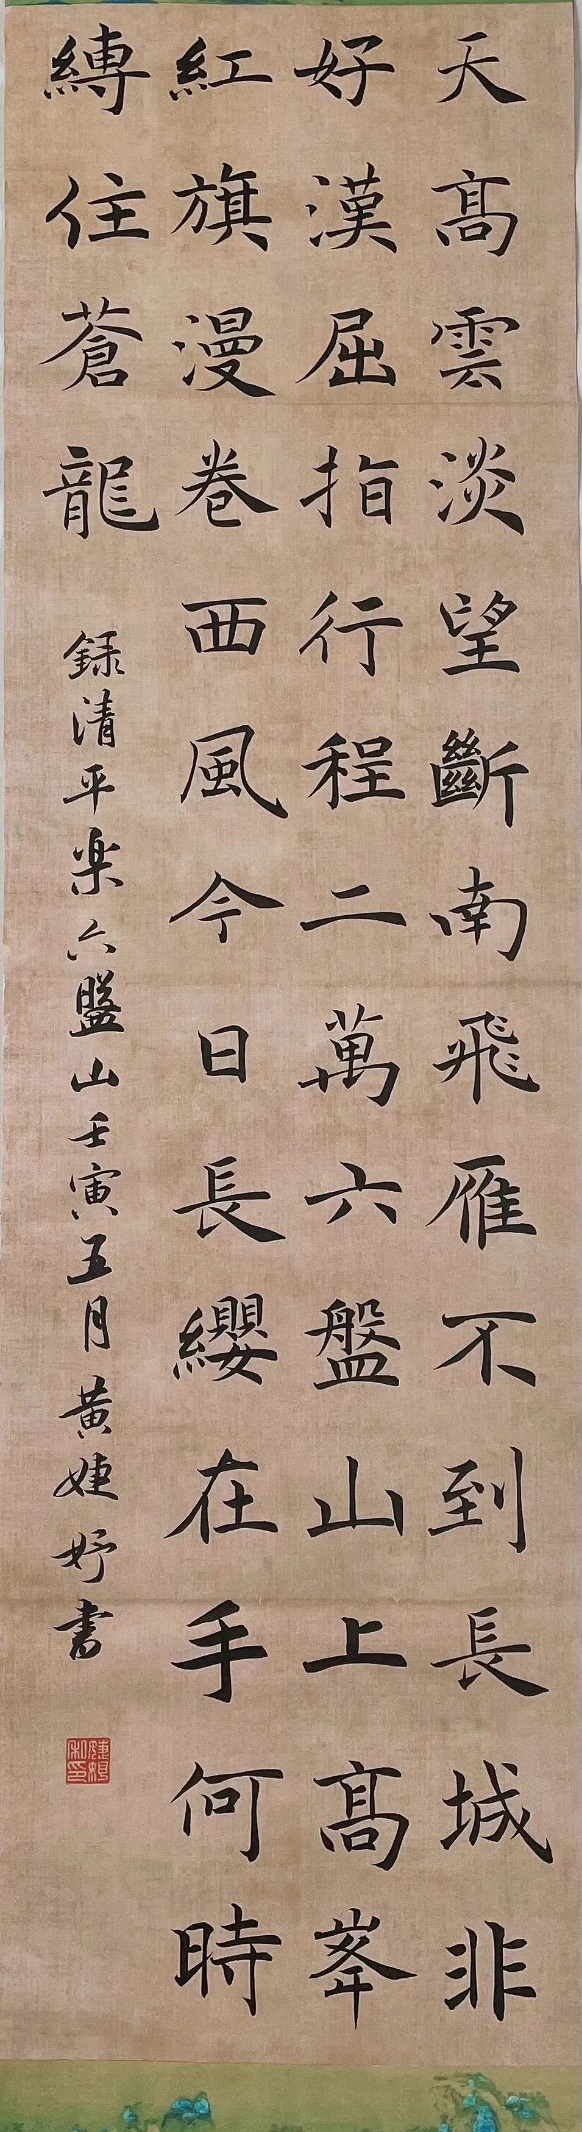 天高雲淡望斷南飛雁不到長城非
好漢屈指行程二萬六盤山上高峯
紅旗漫卷西風今日長纓在手何時
縛住蒼龍
録清平楽六盤山壬寅五月黄婕妤書